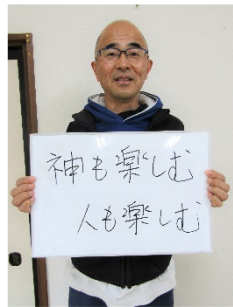 神も楽しむ
人も楽しむ